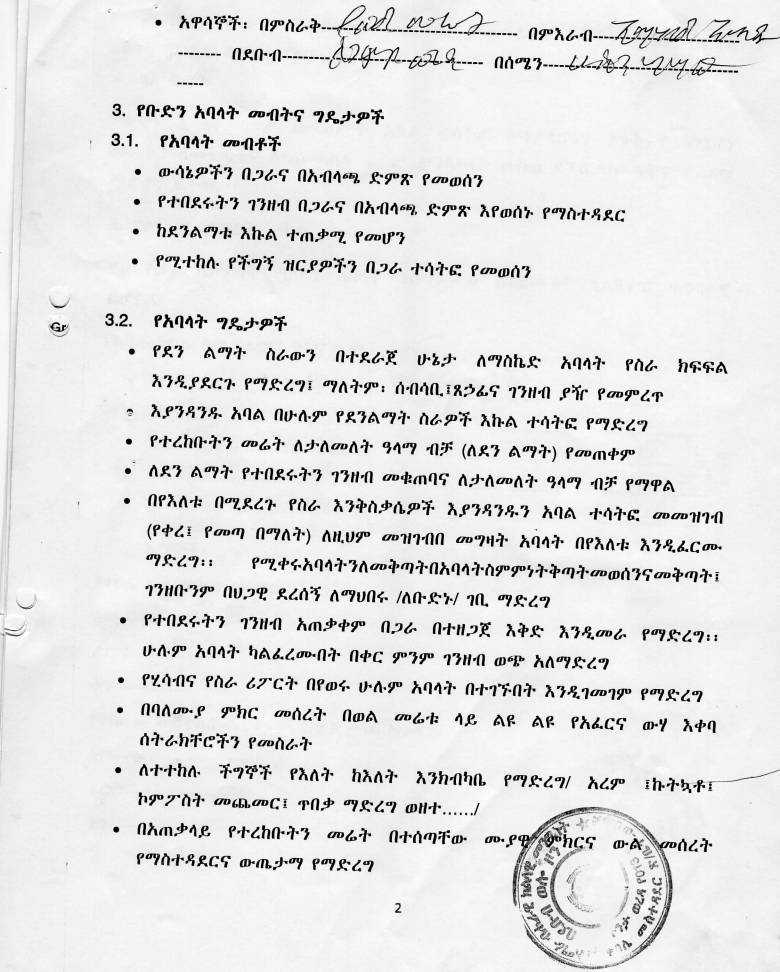 • አዋሳኞች፡ በምስራቅ-------------------------------- በምእራብ------------------------
-------- በደቡብ-------------------------------- በሰሜን--------------------------------
-----
3. የቡድን አባላት መብትና ግዴታዎች
3.1. የአባላት መብቶች
• ውሳኔዎችን በጋራና በአብላጫ ድምጽ የመወሰን
• የተበደሩትን ገንዘብ በጋራና በአብላጫ ድምጽ እየወሰኑ የማስተዳደር
• ከደንልማቱ እኩል ተጠቃሚ የመሆን
• የሚተከሉ የችግኝ ዝርያዎችን በጋራ ተሳትፎ የመወሰን
Gr
3.2. የአባላት ግዴታዎች
• የደን ልማት ስራውን በተደራጀ ሁኔታ ለማስኬድ አባላት የስራ ክፍፍል
እንዲያደርጉ የማድረግ፤ ማለትም፡ ሰብሳቢ፤ጸኃፊና ገንዘብ ያዥ የመምረጥ
• እያንዳንዱ አባል በሁሉም የደንልማት ስራዎች እኩል ተሳትፎ የማድረግ
• የተረከቡትን መሬት ለታለመለት ዓላማ ብቻ (ለደን ልማት) የመጠቀም
• ለደን ልማት የተበደሩትን ገንዘብ መቁጠባና ለታለመለት ዓላማ ብቻ የማዋል
• በየእለቱ በሚደረጉ የስራ እንቅስቃሴዎች እያንዳንዱን አባል ተሳትፎ መመዝገብ
(የቀረ፤ የመጣ በማለት) ለዚህም መዝገብበ መግዛት አባላት በየእለቱ እንዲፈርሙ
ማድረግ፡፡ የሚቀሩአባላትንለመቅጣትበአባላትስምምነትቅጣትመወሰንናመቅጣት፤
ገንዘቡንም በህጋዊ ደረሰኝ ለማህበሩ /ለቡድኑ/ ገቢ ማድረግ
• የተበደሩትን ገንዘብ አጠቃቀም በጋራ በተዘጋጀ እቅድ እንዲመራ የማድረግ፡፡
ሁሉም አባላት ካልፈረሙበት በቀር ምንም ገንዘብ ወጭ አለማድረግ
• የሂሳብና የስራ ሪፖርት በየወሩ ሁሉም አባላት በተገኙበት እንዲገመገም የማድረግ
• በባለሙያ ምክር መሰረት በወል መሬቱ ላይ ልዩ ልዩ የአፈርና ውሃ እቀባ
ሰትራክቸሮችን የመስራት
• ለተተከሉ ችግኞች የእለት ከእለት እንክብካቤ የማድረግ/ አረም ፤ኩትኳቶ፤
ኮምፖስት መጨመር፤ ጥበቃ ማድረግ ወዘተ....../
• በአጠቃላይ የተረከቡትን መሬት በተሰጣቸው ሙያዊ ምክርና ውል መሰረት
የማስተዳደርና ውጤታማ የማድረግ
2